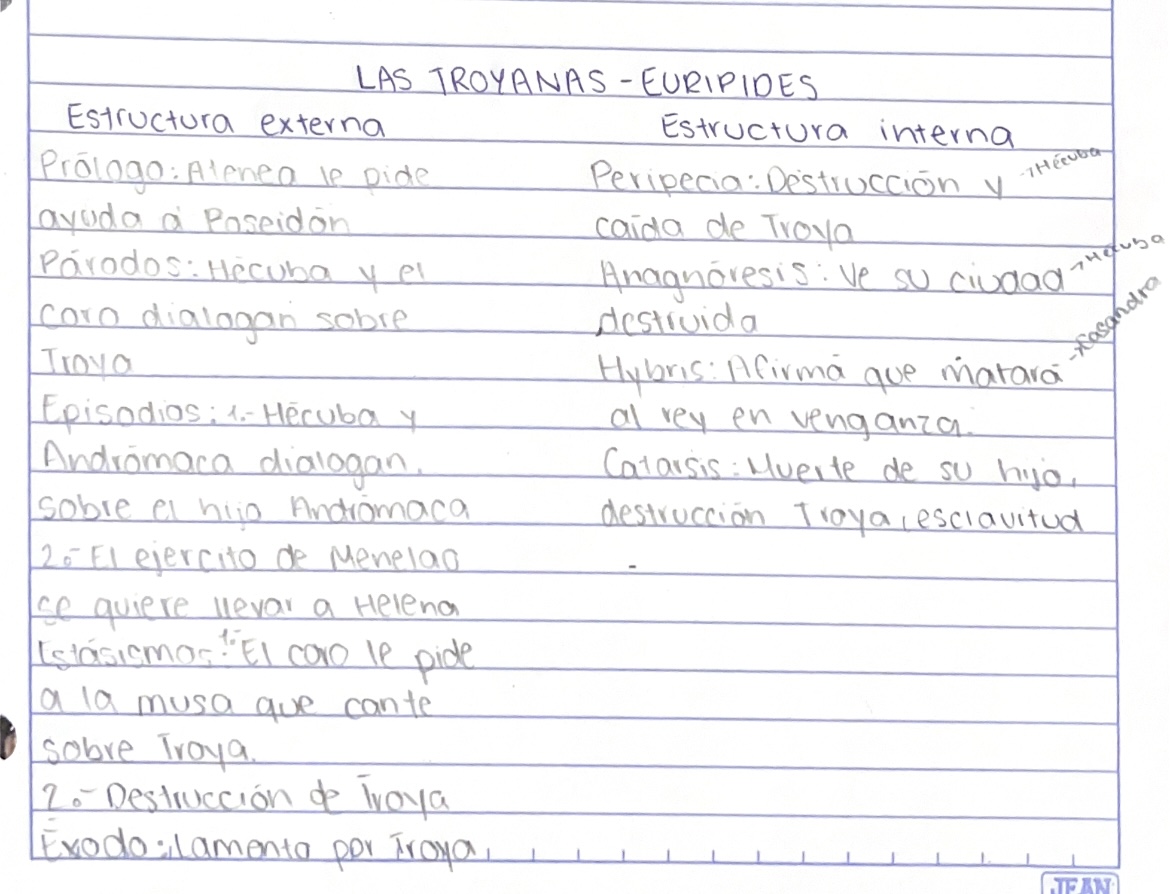 LAS TROYANAS - EURIPIDES
Estructura externa
Prólogo: Atenea le pide
ayuda a Poseidón
Párodos: Hécuba y el
coro dialogan sobre
Troya
Episodios: 1.- Hécuba y
Andrómaca dialogan.
sobre el hijo Andrómaca
2.- El ejercito de Menelao
se quiere llevar a Helena
Estásismos: 1.- El coro le pide
a la musa que cante
sobre Troya.
2.- Destrucción de Troya
Éxodo: Lamento por Troya
Estructura interna
Peripecia: Destrucción y → Hécuba
caída de Troya
Anagnóresis: Ve su ciudad → Hécuba
destruida
Hybris: Afirma que matará → Casandra
al rey en venganza.
Catarsis: Muerte de su hijo,
destrucción Troya, esclavitud
JEAN